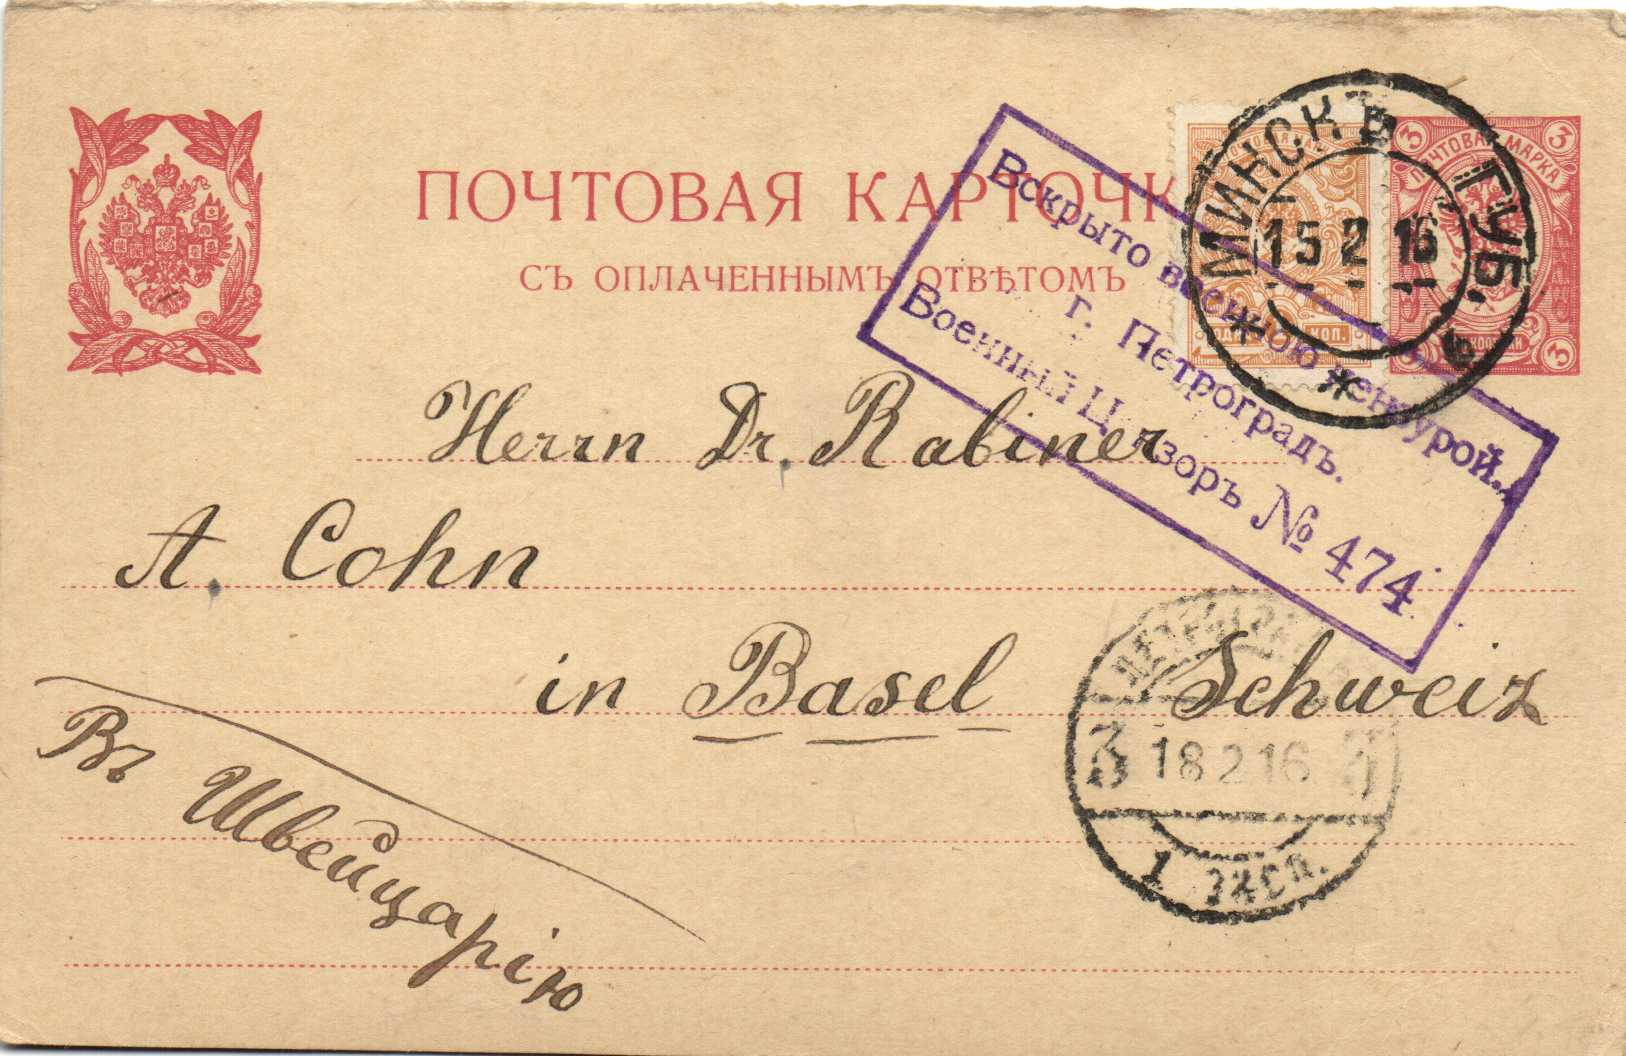 ПОЧТОВАЯ КАРТОЧК
СЪ ОПЛАЧЕННЫМЪ ОТВѢТОМЪ
3 3
ПОЧТОВАЯ МАРКА
КОП.
3
МИНСКЪ ГУБ.
15 2 16
Вскрыто военною цензурой.
г. Петроградъ.
Военный Цензоръ № 474
Herrn Dr. Rabiner
A. Cohn
in Basel Schweiz
Въ Швейцарію
ПЕТРОГРАДЪ
3 18 2 16 3
1 ЭКСП.